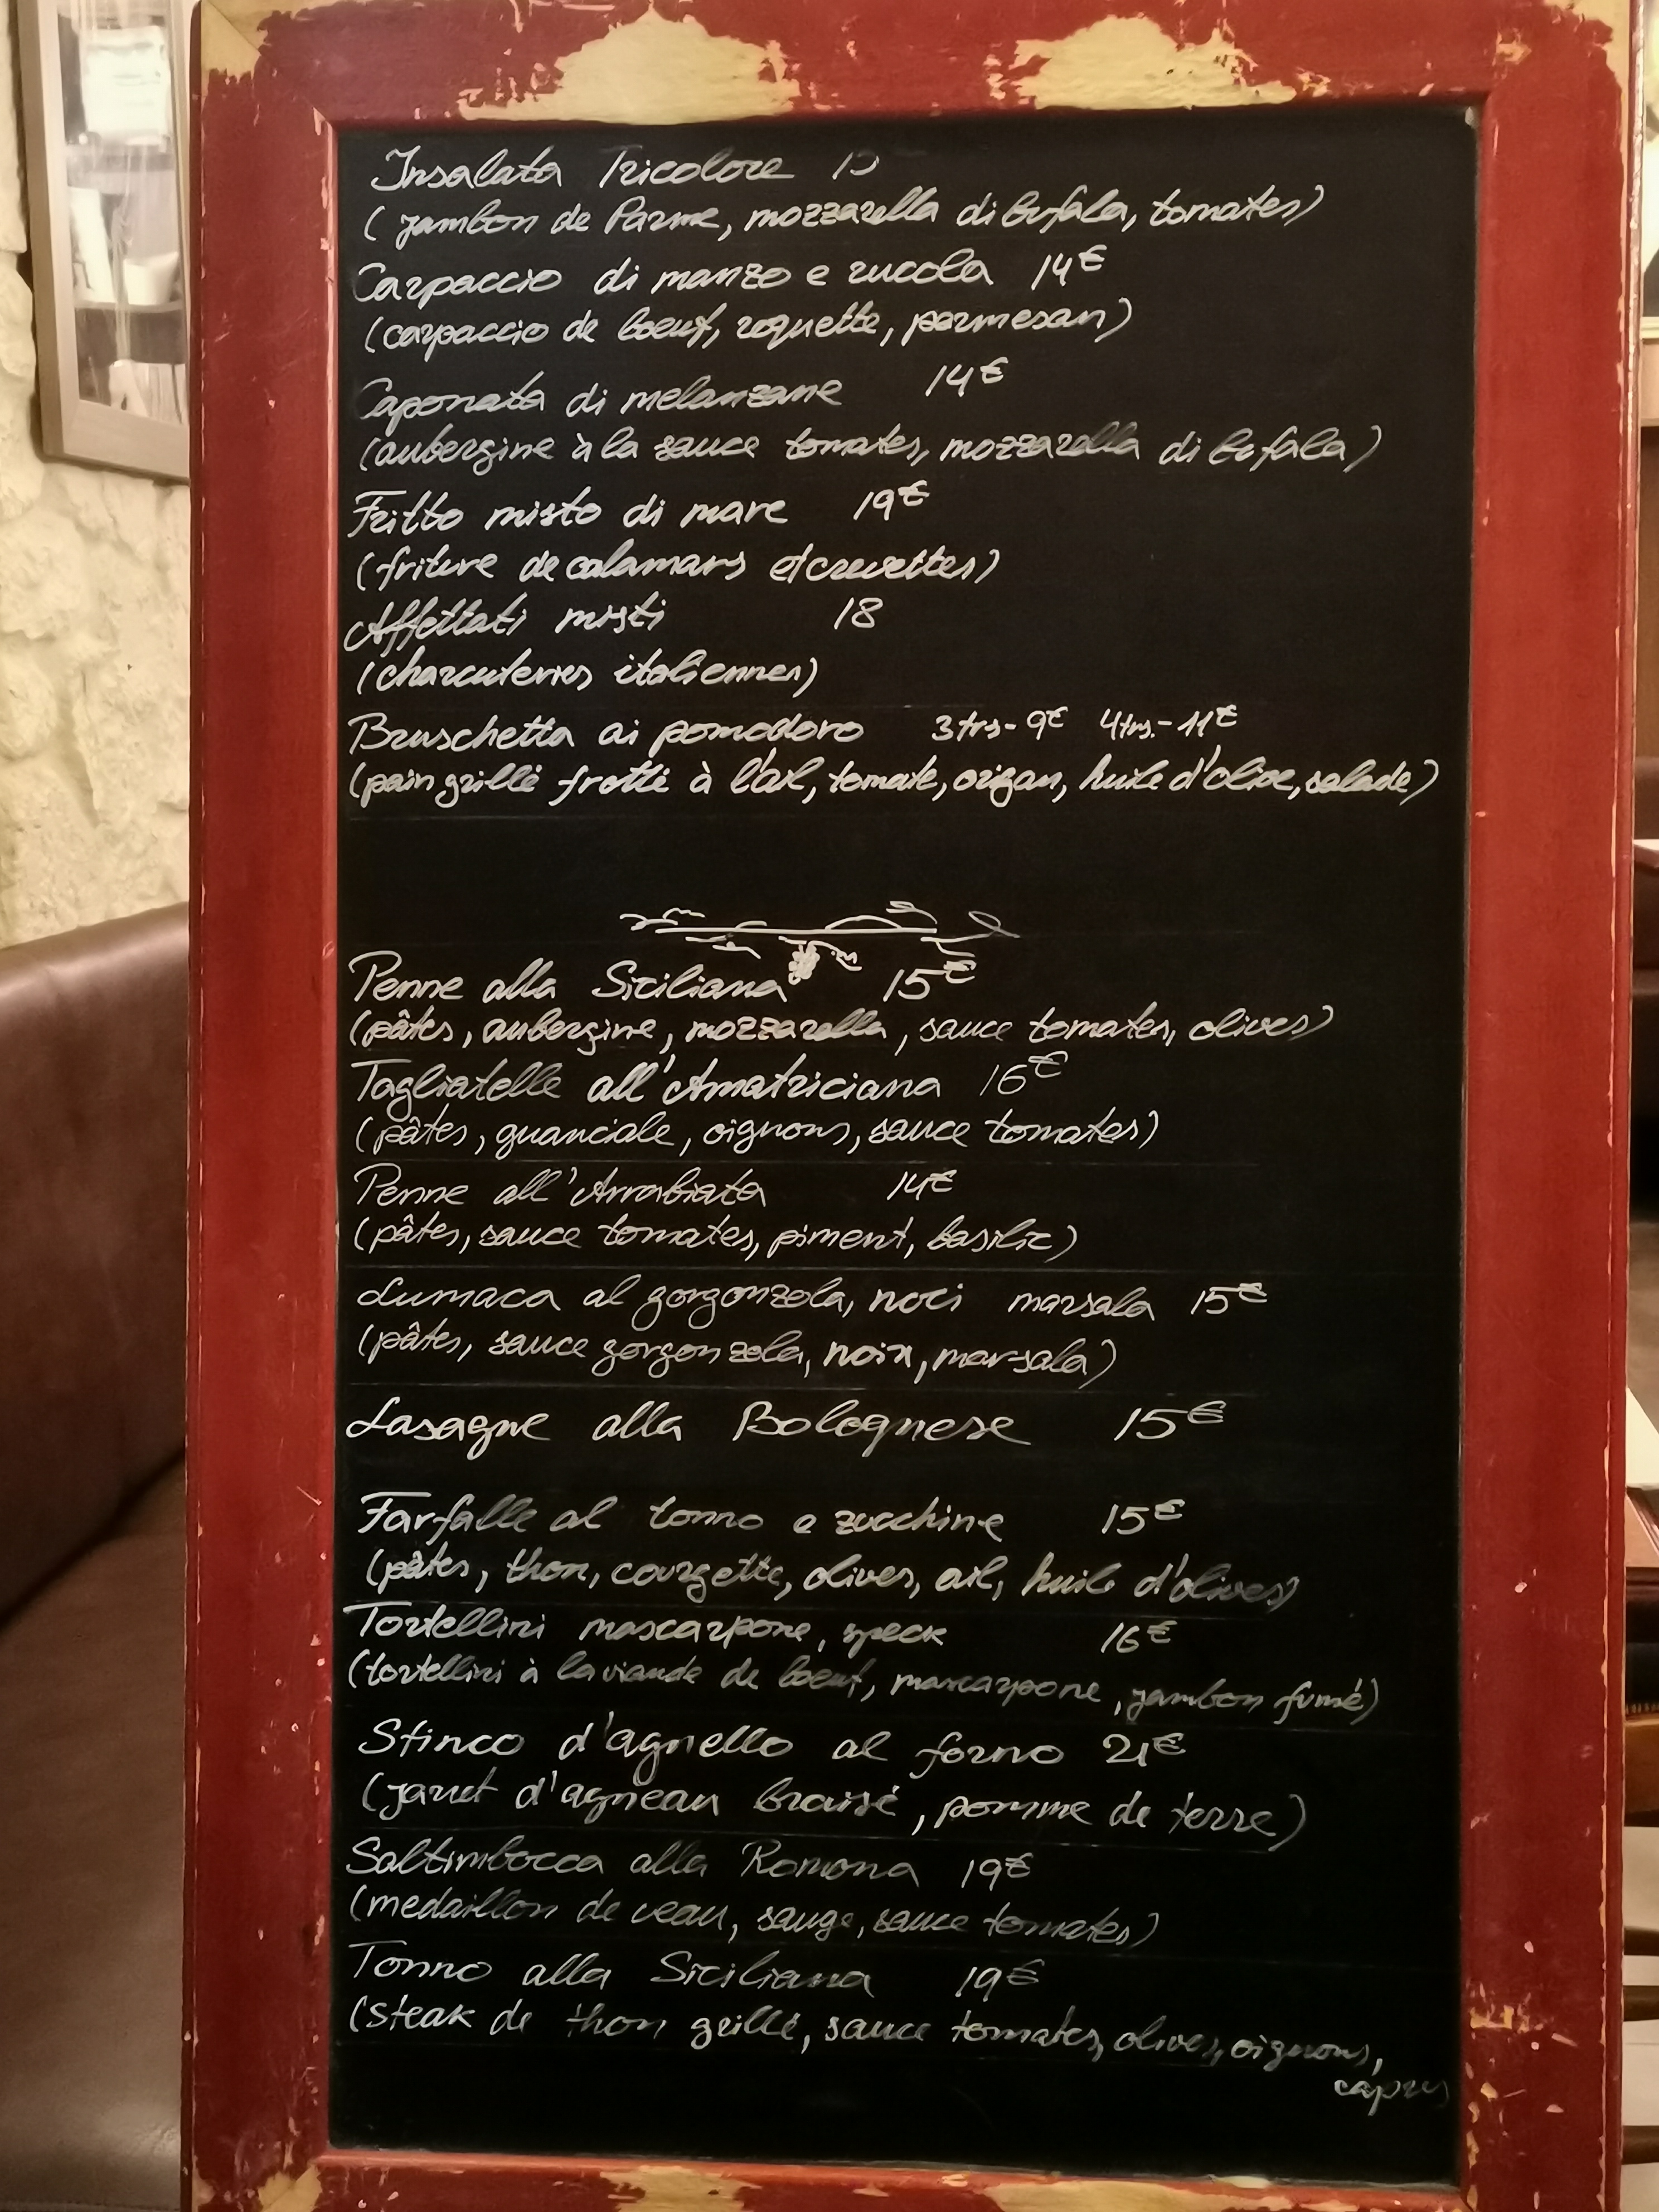 Insalata Tricolore
(jambon de Parme, mozzarella di bufala, tomates)
Carpaccio di manzo e rucola 14€
(carpaccio de boeuf, roquette, parmesan)
Caponata di melanzane 14€
(aubergine à la sauce tomates, mozzarella di bufala)
Fritto misto di mare 19€
(friture de calamars et crevettes)
Affettati misti 18
(charcuteries italiennes)
Bruschetta ai pomodoro 3trs-9€ 4trs.-11€
(pain grillé frotté à l'ail, tomate, origan, huile d'olive, salade)
Penne alla Siciliana 15€
(pâtes, aubergine, mozzarella, sauce tomates, olives)
Tagliatelle all'Amatriciana 16€
(pâtes, guanciale, oignons, sauce tomates)
Penne all'Arrabiata 14€
(pâtes, sauce tomates, piment, basilic)
Lumaca al gorgonzola, noci marsala 15€
(pâtes, sauce gorgonzola, noix, marsala)
Lasagne alla Bolognese 15€
Farfalle al tonno e zucchine 15€
(pâtes, thon, courgette, olives, ail, huile d'olives)
Tortellini mascarpone, speck 16€
(tortellini à la viande de boeuf, mascarpone, jambon fumé)
Stinco d'agnello al forno 21€
(jarret d'agneau braisé, pomme de terre)
Saltimbocca alla Romana 19€
(medaillon de veau, sauge, sauce tomates)
Tonno alla Siciliana 19€
(steak de thon grillé, sauce tomates, olives, oignons,
câpres